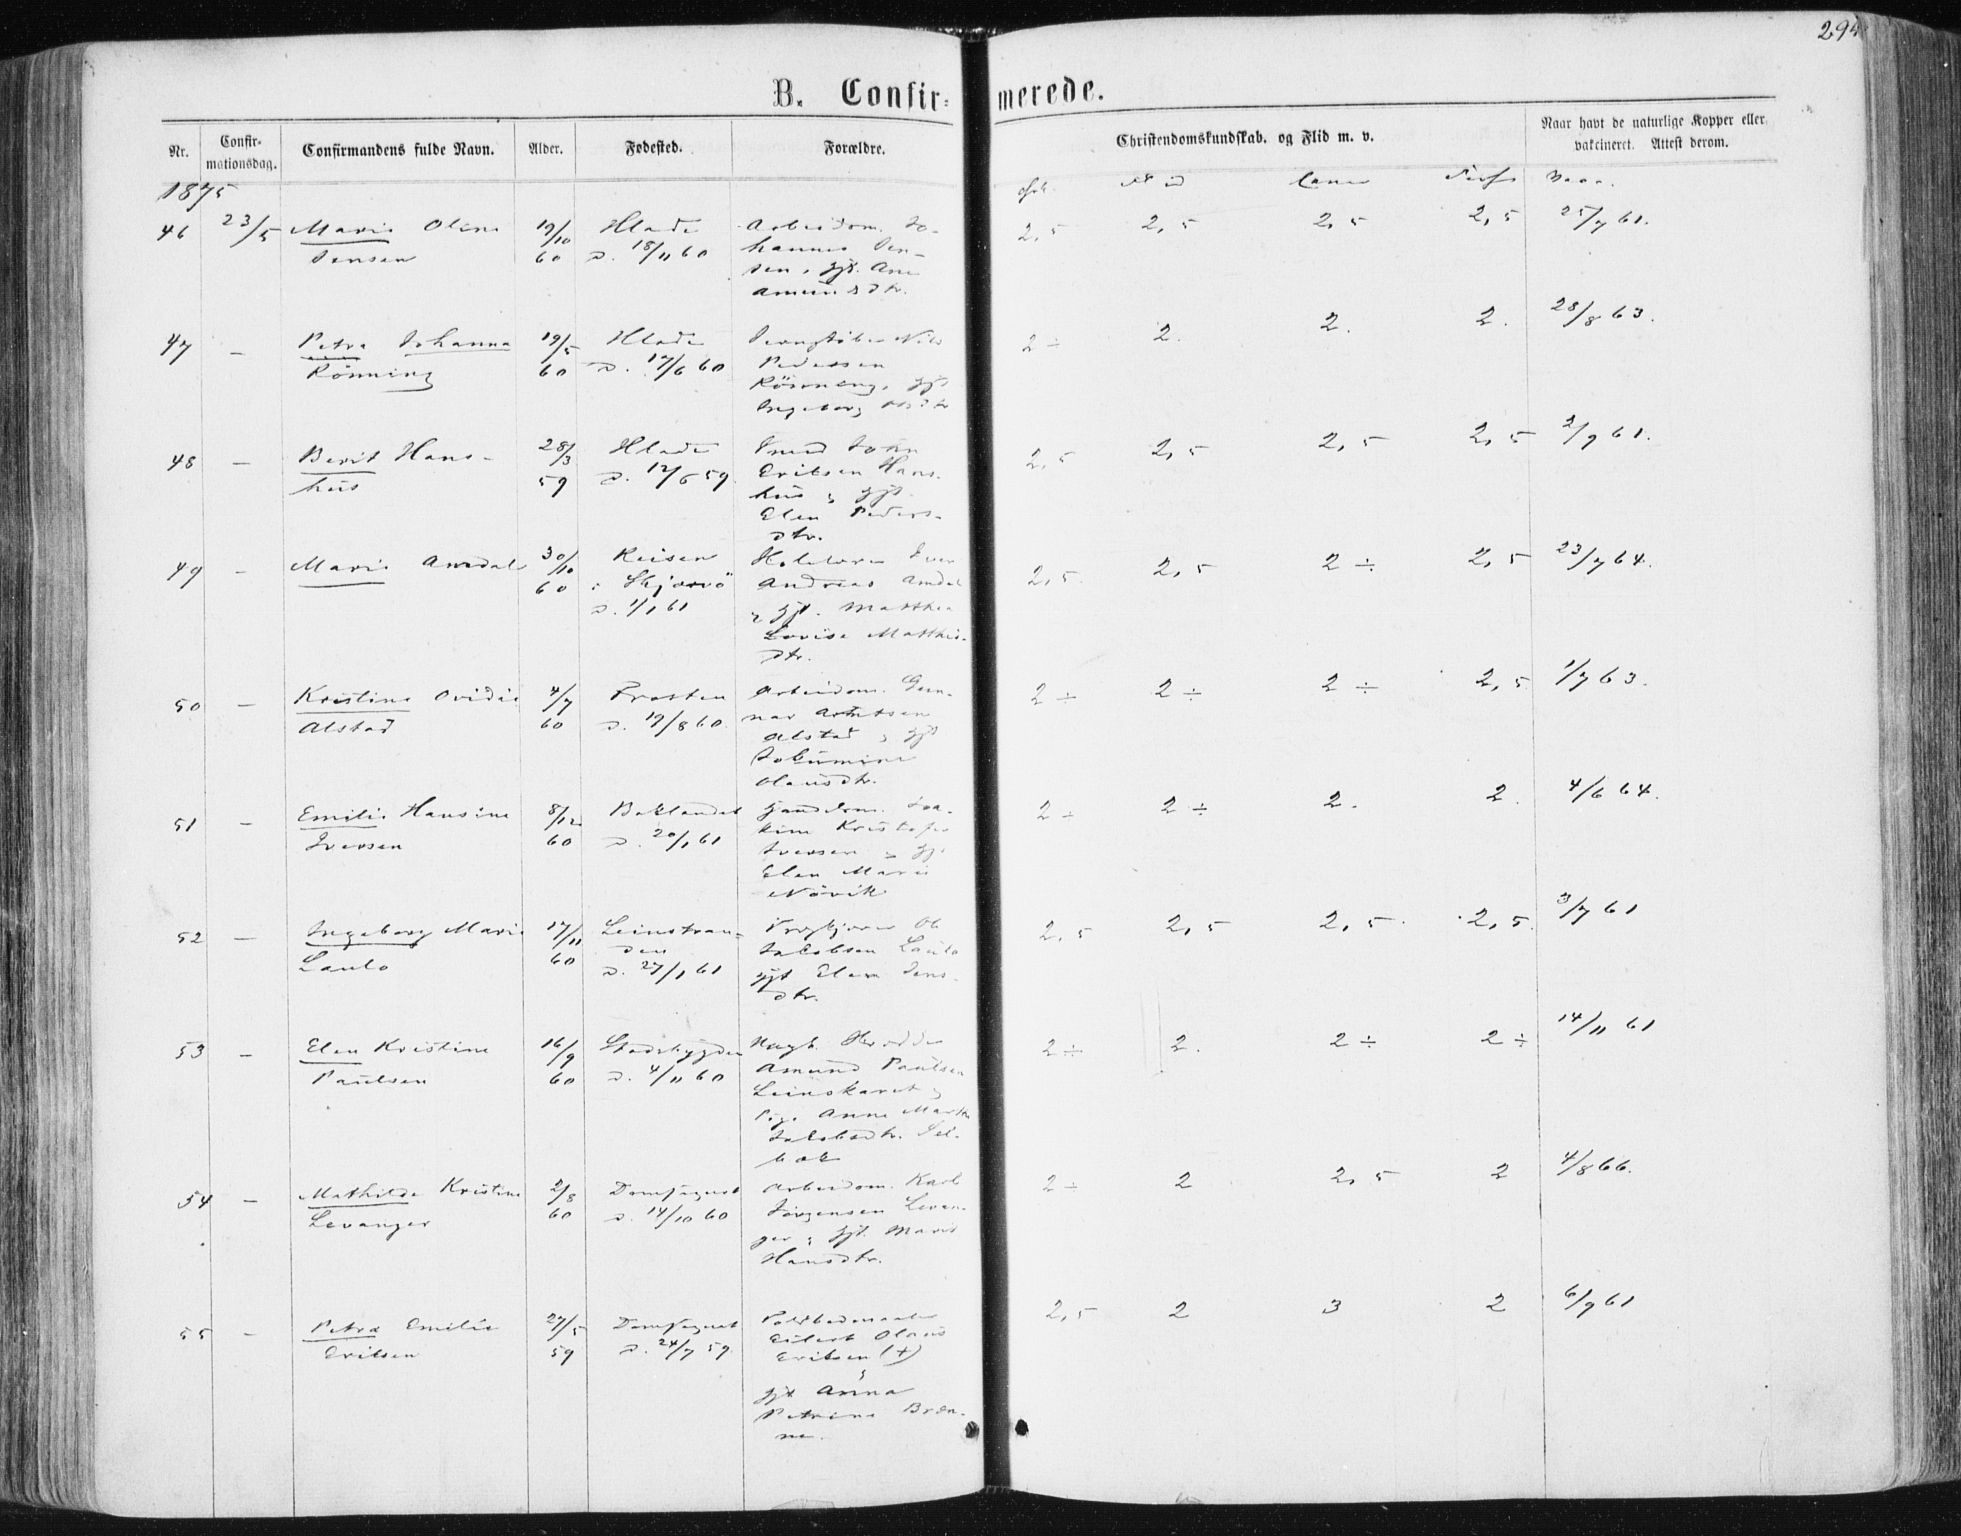 294
B. Confir- merede.
Nr. Confir-mationsdag. Confirmandens fulde Navn. Alder. Fødested. Forældre. Christendomskundskab. og Flid m. v. Naar havt de naturlige Kopper eller vakcineret. Attest derom.
1875
46 23/5 Marie Oline 19/10 Hlade Arbeidsm. Jo- 2,5 2,5 2,5 2,5 25/7 61.
Jensen 60 d. 18/11 60 hannes Jen-
sen, gft. Ane
Amundsdtr.
47 - Petra Johanna 19/5 Hlade Nils 2÷ 2. 2. 2. 28/8 63.
Rönning 60 d. 17/6 60 Pedersen
Rönning, gft
Ingeborg
48 - Berit Hans- 28/3 Hlade John 2,5 2,5 2,5 2,5 2/9 61.
hus 59 d. 12/6 59. Eriksen Hans-
hus, gft.
Elen Peders-
dtr.
49 - Marie Amdal 30/10 Reisen Iver 2,5. 2,5 2÷ 2,5 23/7 64.
60 i Skjærvö Andreas Amdal
d. 1/1 61 , gft. Matthea
Lovise Matthis-
dtr.
50 - Kristine Ovidie 4/7 Frosten Arbeidsm. Gun- 2÷ 2÷ 2÷ 2,5 1/7 63.
Alstad 60 d. 19/8 60. nar Arntsen
Alstad, gft
Jokumine
Olausdtr.
51 - Emilie Hansine 8/12 Baklandet Joa- 2÷ 2÷ 2. 2. 4/6 64.
Iversen 60 d. 20/1 61 kim Kristofer
Iversen, gft
Elen Marie
Növik
52 - Ingeborg Marie 17/11 Leinstran- Ole 2,5 2,5 2,5. 2,5. 3/7 61
Laulo 60 den Jakobsen Laulo
d. 27/1 61 gft Elen Jens-
dtr.
53 - Elen Kristine 16/9 Stadsbygden 2÷ 2. 2÷ 2÷ 14/11 61
Paulsen 60 d. 4/11 60 Amund Paulsen
Leinskaret,
Pige Anne Marta
Jakobsdtr. Sel-
bak
54 - Mathilde Kristine 2/8 Domsognet Arbeidsm. Karl 2÷ 2 2,5 2 4/8 66.
Levanger 60 d. 14/10 60 Jörgensen Levan-
ger, gft. Marit
Hansdtr.
55 - Petra Emilie 27/5 Domsognet 2,5 2 3 2 6/9 61
Eriksen 59 d. 24/7 59. Eilert Olaus
Eriksen (+)
,
gft Anna
Petrine Bræn-
ne.